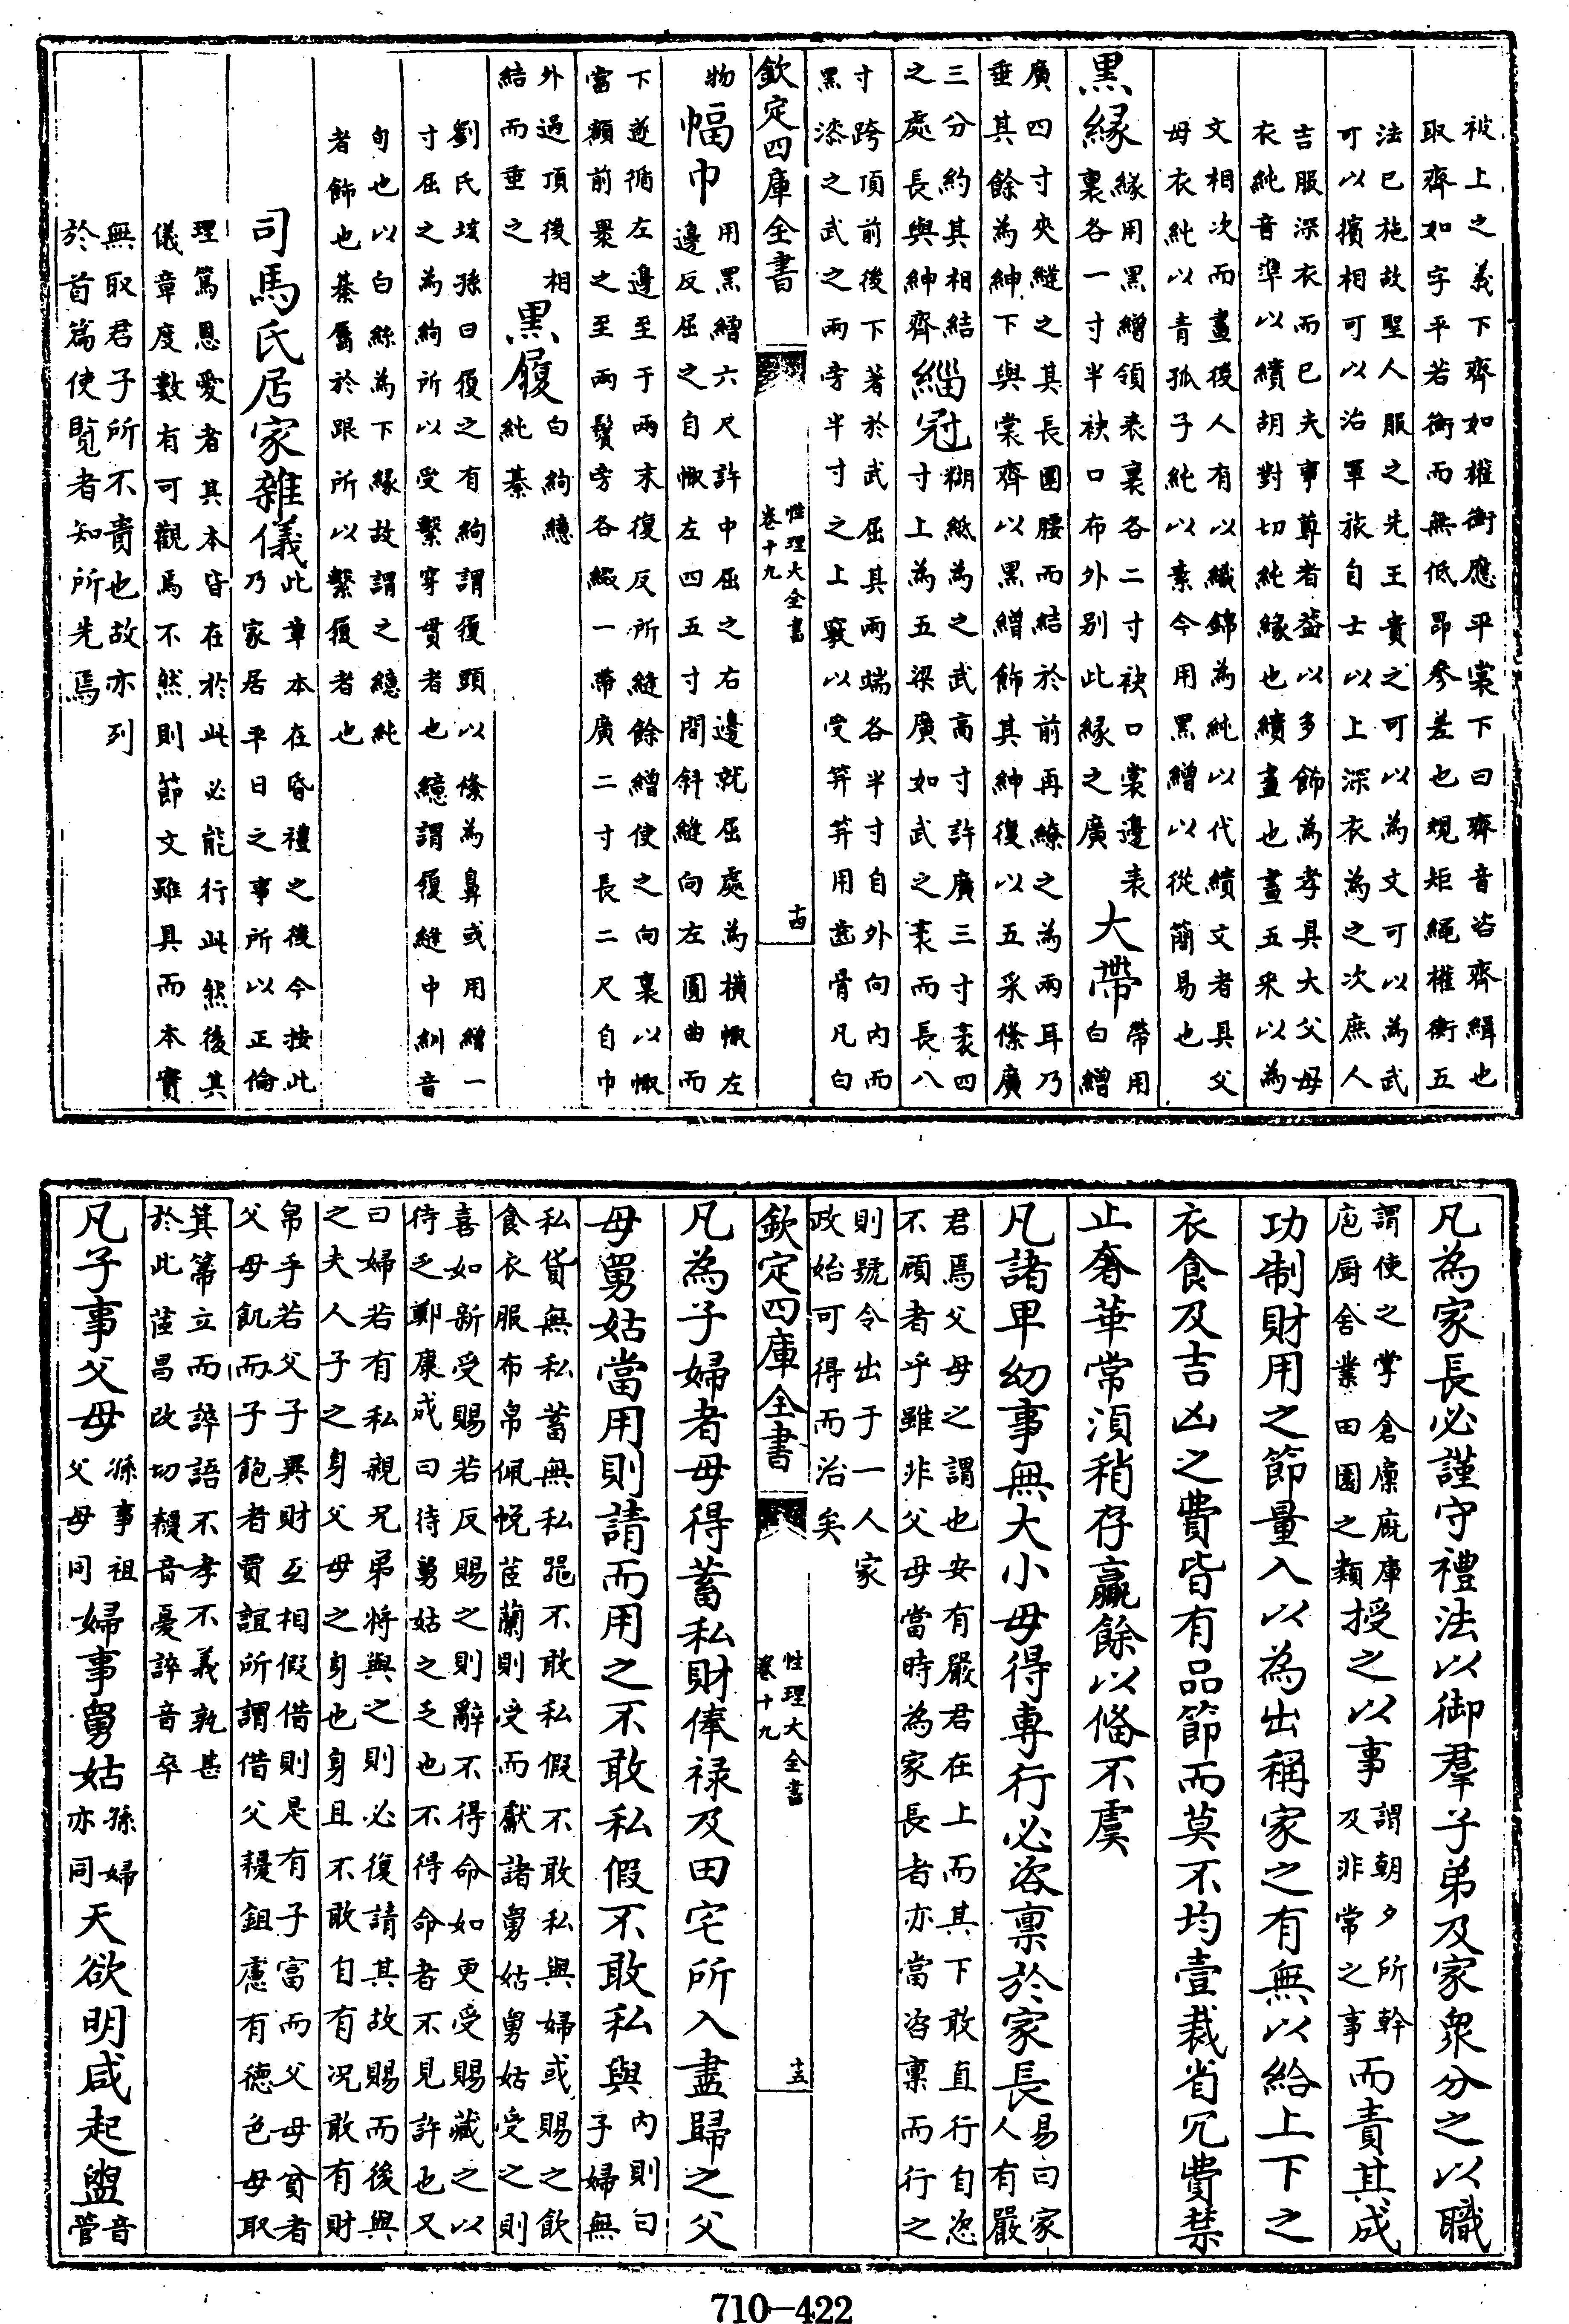 被上之義下齊如權衡應平裳下曰齊音咨齊緝也
取齊如字平若衡而無低昂參差也規矩繩權衡五
法已施故聖人服之先王貴之可以為文可以為武
可以擯相可以治軍旅自士以上深衣為之次庶人
吉服深衣而已夫事尊者葢以多飾為孝具大父母
衣純音準以繢胡對切純緣也繢畫也畫五采以為
文相次而畫後人有以織錦為純以代繢文者具父
母衣純以青孤子純以素今用黑繒以從簡易也
黑緣緣用黑繒領表裏各二寸袂口裳邊表裏各一寸半袂口布外别此緣之廣大帶帶用白繒
廣四寸夾縫之其長圍腰而結於前再繚之為兩耳乃
垂其餘為紳下與裳齊以黑繒飾其紳復以五采絛廣
三分約其相結之處長與紳齊緇冠糊紙為之武高寸許廣三寸袤四寸上為五梁廣如武之袤而長八
寸跨頂前後下著於武屈其兩端各半寸自外向内而
黑漆之武之兩旁半寸之上竅以受笄笄用齒骨凡白
欽定四庫全書
性理大全書
卷十九
十四
物幅巾用黑繒六尺許中屈之右邊就屈處為横㡇左邊反屈之自㡇左四五寸間斜縫向左圓曲而
下遂循左邊至于兩末復反所縫餘繒使之向裏以㡇
當額前裹之至兩鬢旁各綴一帶廣二寸長二尺自巾
外過頂後相結而垂之黑履白絇繶純綦
劉氏垓孫曰履之有絇謂履頭以絛為鼻或用繒一
寸屈之為絇所以受繫穿貫者也繶謂履縫中紃音
旬也以白絲為下緣故謂之繶純
者飾也綦屬於跟所以繫履者也
司馬氏居家雜儀此章本在昏禮之後今按此乃家居平日之事所以正倫
理篤恩愛者其本皆在於此必能行此然後其
儀章度數有可觀焉不然則節文雖具而本實
無取君子所不貴也故亦列
於首篇使覽者知所先焉
凡為家長必謹守禮法以御羣子弟及家衆分之以職
謂使之掌倉廩廐庫庖厨舍業田園之類授之以事謂朝夕所幹及非常之事而責其成
功制財用之節量入以為出稱家之有無以給上下之
衣食及吉凶之費皆有品節而莫不均壹裁省冗費禁
止奢華常湏稍存贏餘以備不虞
凡諸卑幼事無大小毋得專行必咨禀於家長易曰家人有嚴
君焉父母之謂也安有嚴君在上而其下敢直行自恣
不顧者乎雖非父母當時為家長者亦當咨禀而行之
則號令出于一人家
政始可得而治矣
欽定四庫全書
性理大全書
卷十九
十五
凡為子婦者毋得蓄私財俸禄及田宅所入盡歸之父
母舅姑當用則請而用之不敢私假不敢私與内則曰子婦無
私貨無私蓄無私噐不敢私假不敢私與婦或賜之飲
食衣服布帛佩帨茝蘭則受而獻諸舅姑舅姑受之則
喜如新受賜若反賜之則辭不得命如更受賜藏之以
待乏鄭康成曰待舅姑之乏也不得命者不見許也又
曰婦若有私親兄弟將與之則必復請其故賜而後與
之夫人子之身父母之身也身且不敢自有况敢有財
帛乎若父子異財互相假借則是有子富而父母貧者
父母飢而子飽者賈誼所謂借父耰鉏慮有德色母取
箕箒立而誶語不孝不義孰甚
於此茝昌改切耰音憂誶音卒
凡子事父母孫事祖父母同婦事舅姑孫婦亦同天欲明咸起盥音管
710-422